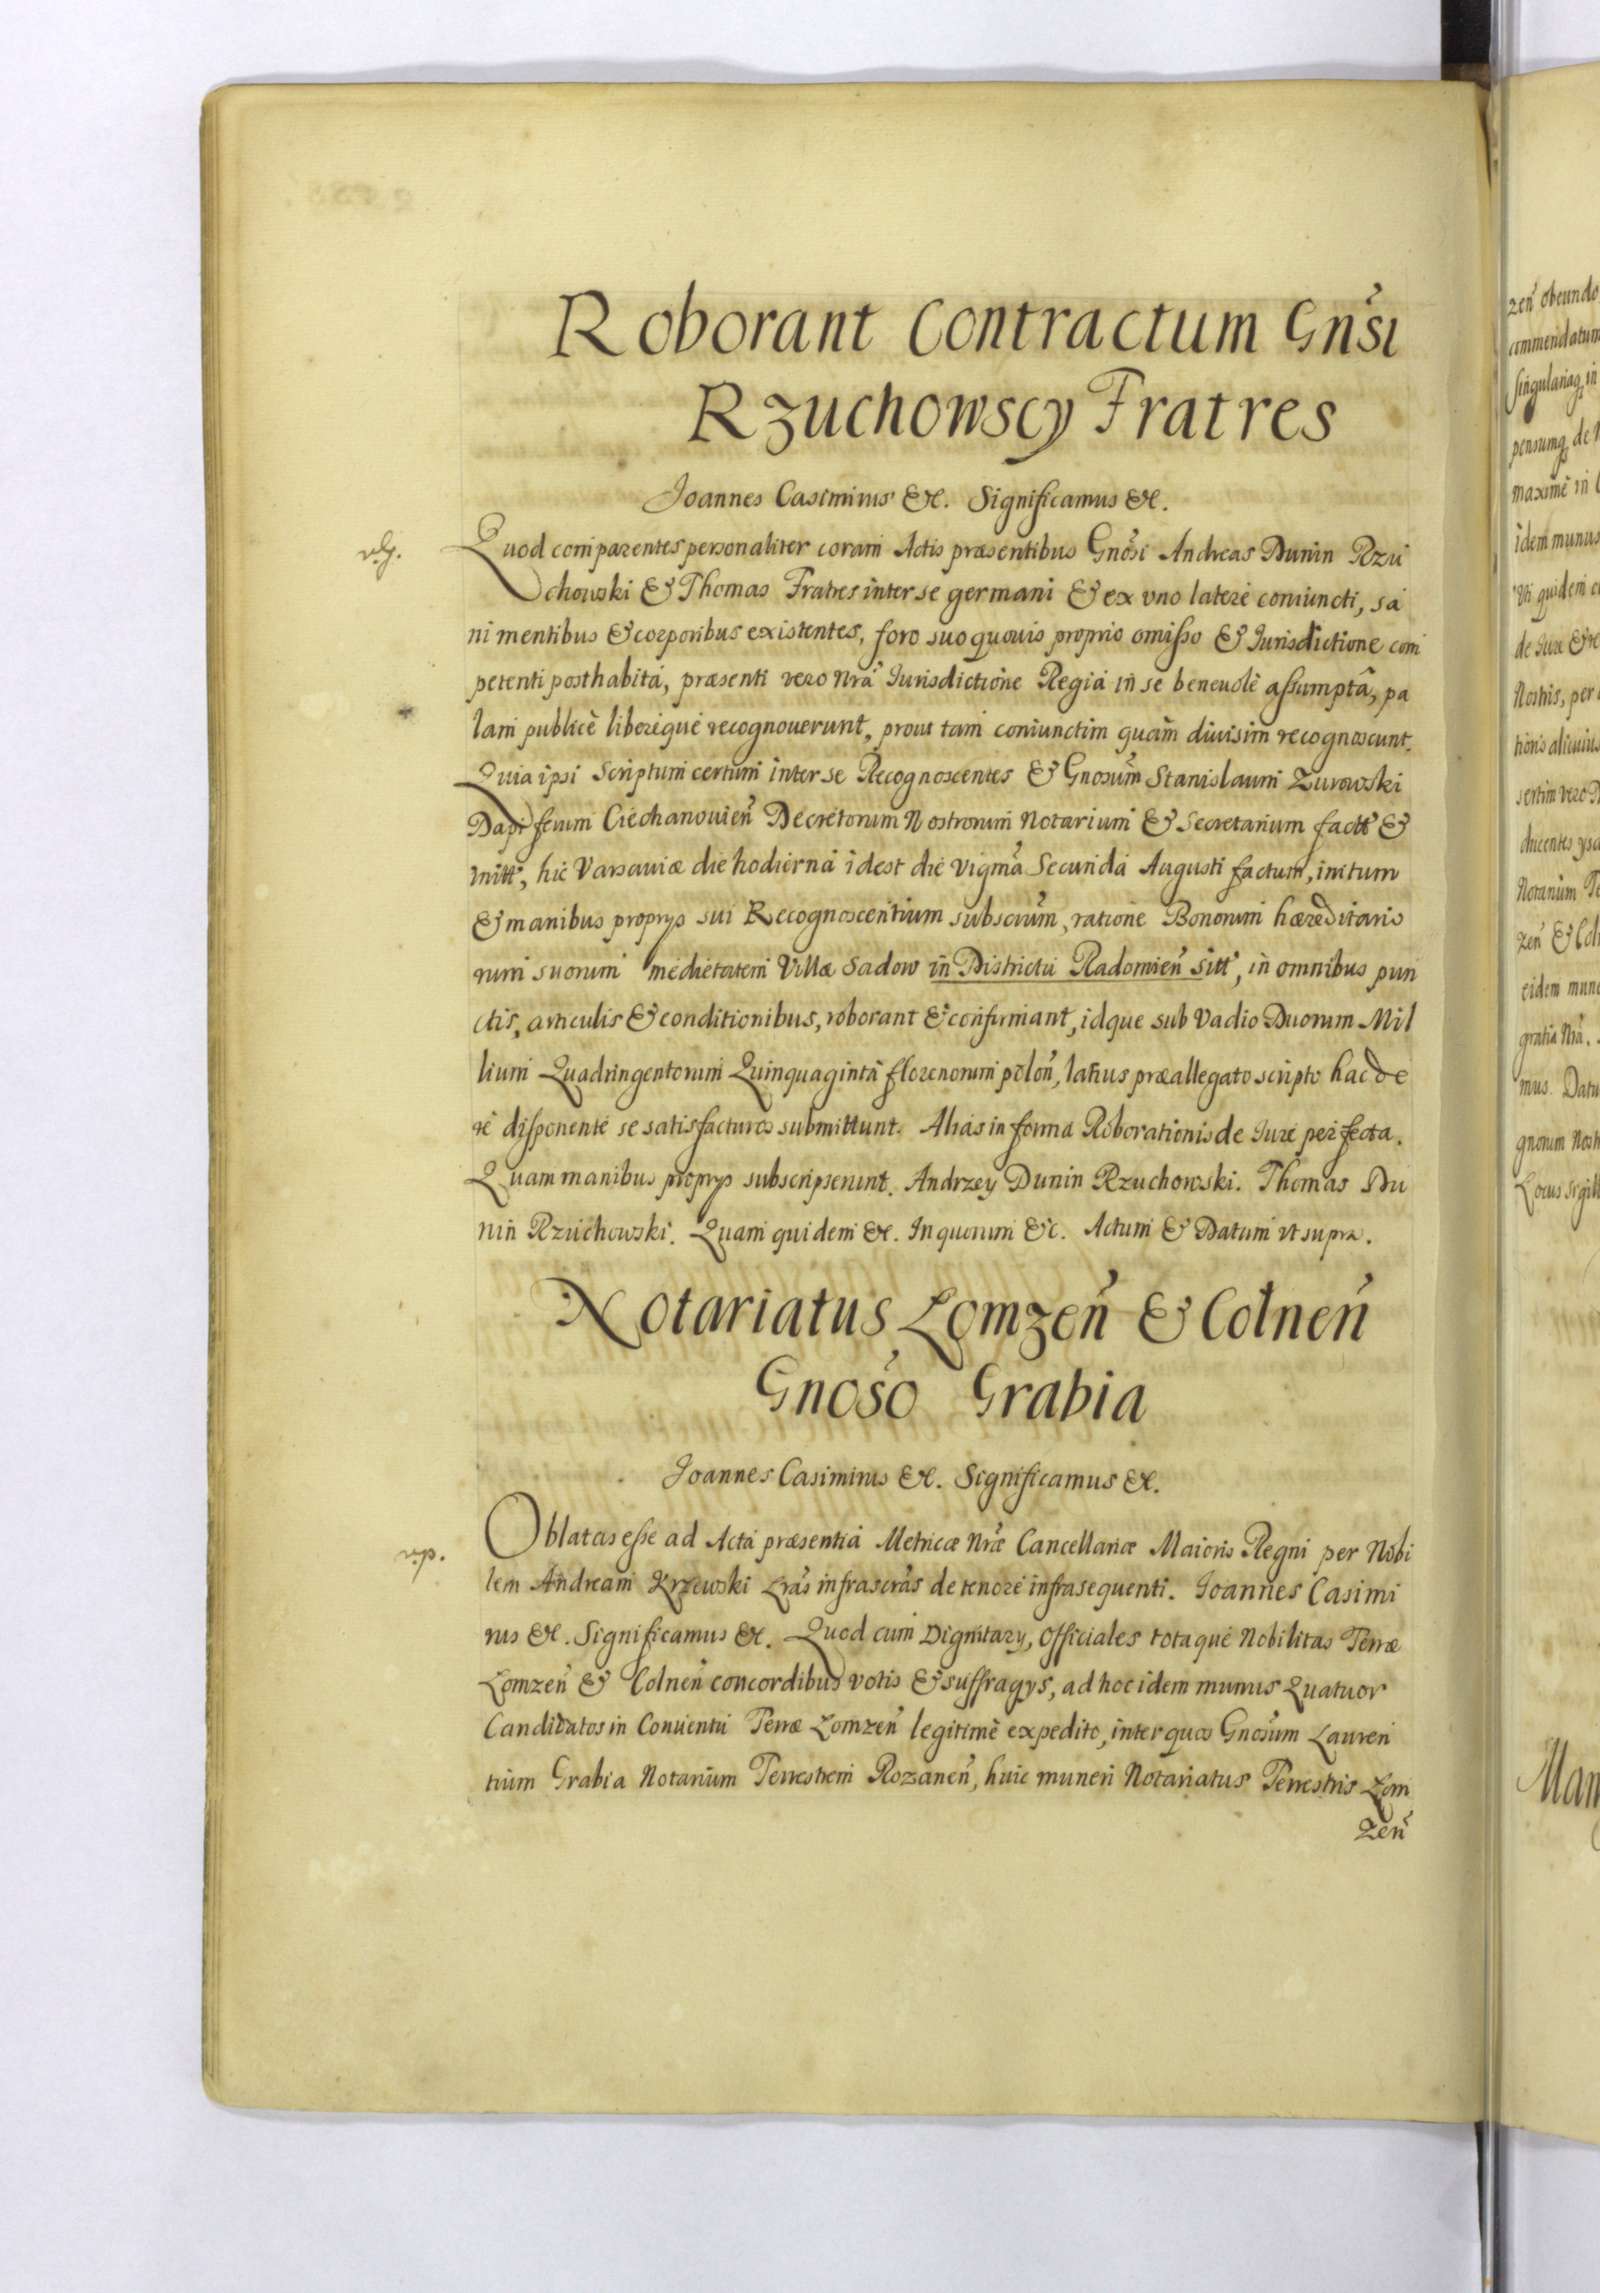 Roborant Contractum Gnsi
Rzuchowscy Fratres
Joannes Casimirus &c. Significamus &c.
Quod comparentes personaliter coram Actis præsentibus Gnosi Andreas Dunin Rzu
chowski & Thomas Fratres inter se germani & ex vno latere coniuncti, sa
ni mentibus & corporibus existentes, foro suo quouis proprio omisso & Jurisdictione com
petenti posthabitá, præsenti vero Nrâ Jurisdictione Regiá in se beneuolè assumptâ, pa
lam publicè liberéque recognouerunt, prout tam coniunctim quàm diuisim recognoscunt.
Quia ipsi Scriptum certum inter se Recognoscentes & Gnosum Stanislaum Zurowski
Dapiferum Ciechanouien Decretorum Nostrorum Notarium & Secretarium factt &
initt, hic Varsauiæ die hodierná idest die vigmâ Secundá Augusti factum, initum
& manibus proprys sui Recognoscentium subscrûm, ratione Bonorum hæreditario
rum suorum medietatem Villæ Sadow in Districtu Radomien sitt, in omnibus pun
ctis, articulis & conditionibus, roborant & confirmant, idque sub Vadio Duorum Mil
lium Quadringentorum Quinquagintà florenorum polon, latius præallegato scripto hac de
ré disponente se satisfacturos submittunt. Alias in forma Roborationis de Jure perfecta.
Quam manibus proprys subscripserunt. Andrzey Dunin Rzuchowski. Thomas Du
nin Rzuchowski. Quam quidem &c. In quorum &c. Actum & Datum vt supra.
Notariatus Lomzen & Colnen
Gnoso Grabia
Joannes Casimirus &c. Significamus &c.
Oblatas esse ad Acta præsentia Metricæ Nræ Cancellariæ Maioris Regni per Nobi
lem Andream Krzewski Lras infrascras de tenore infrasequenti. Joannes Casimi
rus &c. Significamus &c. Quod cum Dignitary, Officiales totaque Nobilitas Terræ
Lomzen & Colnen concordibus votis & suffragys, ad hoc idem munus Quatuor
Candidatos in Conuentu Terræ Lomzen legitimè expedito, inter quos Gnosum Lauren
tium Grabia Notarium Terrestrem Rozanen, huic muneri Notariatus Terrestris Lom
zen
zen obeundo
commendatum
singulariaq in
pensumq de
maximè in
idem munus
Vti quidem
de Jure &
Nostris, per
tionis alicuius
sertim vero
ducentes
Notarium
zen &
eidem
gratia Nrâ.
mus. Datu
gnorum Nost
Locus Sigill